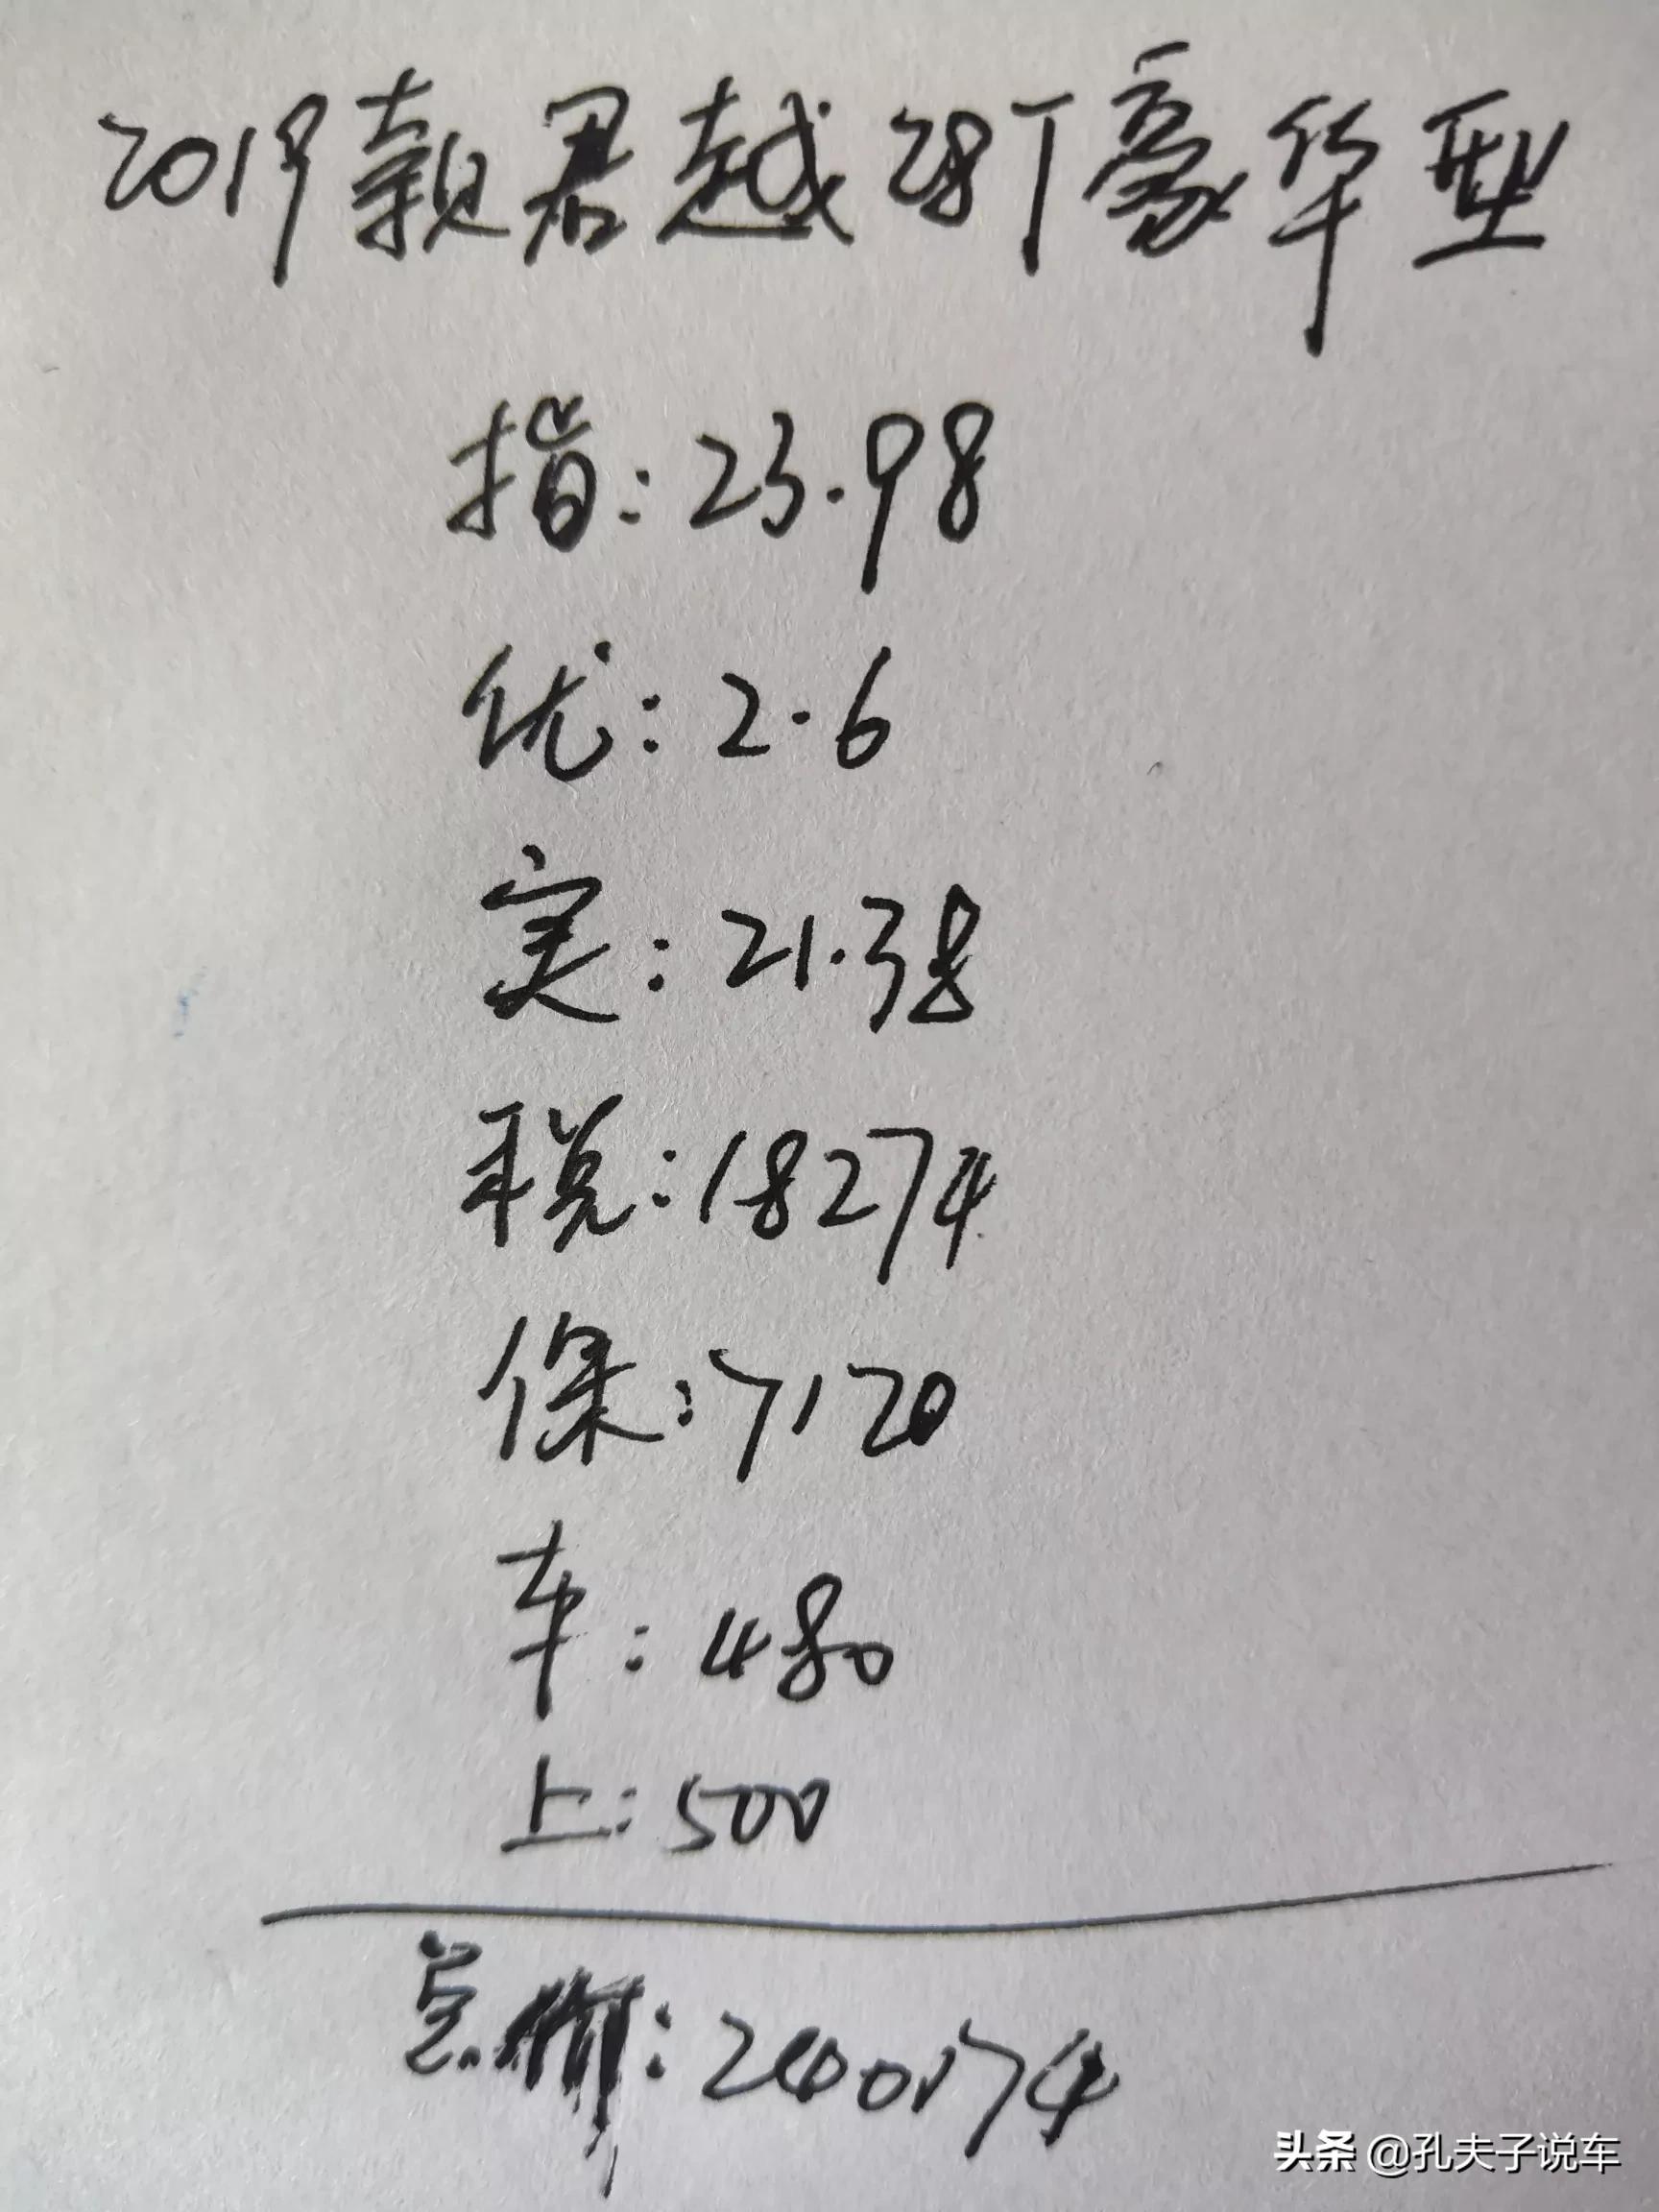 2019款君越28T豪华型
指:23.98
优:2.6
实:21.38
税:18274
保:7120
车:480
上:500
总价:240174
头条 @孔夫子说车